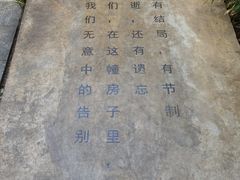 有结局，有节制
逝，还有遗忘
们，在这幢房子里，
我们无意中的告别